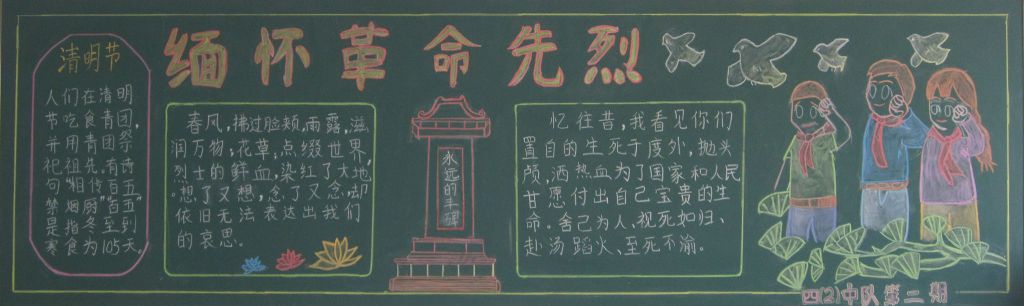 缅怀革命先烈
清明节
人们在清明
节吃青团，
并用食青团祭
祀祖先。有诗
句"相传百五
禁烟厨"，"百五"
是指冬至到
寒食为105天。
春风，拂过脸颊，雨露，滋
润万物，花草，点缀世界，
烈士的鲜血，染红了大地
。想了又想，念了又念，却
依旧无法表达出我们
的哀思。
永远的丰碑
忆往昔，我看见你们
置自的生死于度外，抛头
颅，洒热血为了国家和人民
甘愿付出自己宝贵的生
命。舍己为人、视死如归、
赴汤蹈火、至死不渝。
四(2)中队第二期